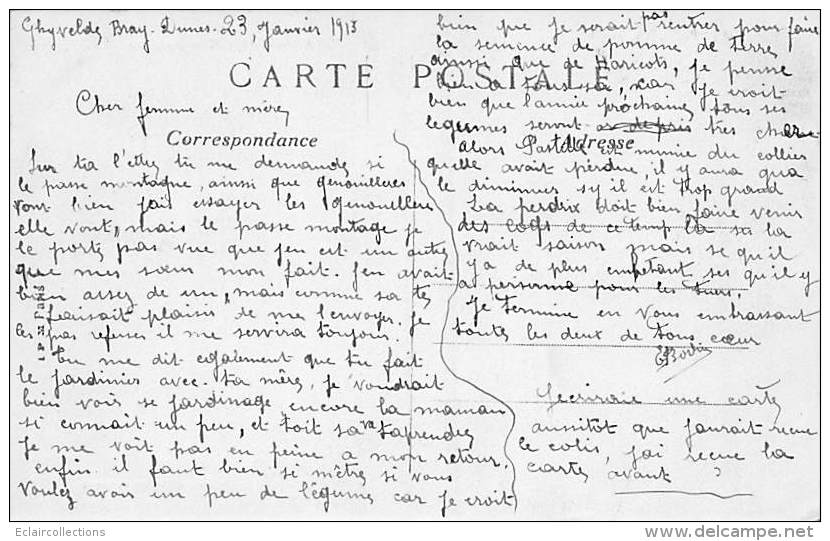 Ghyvelde, Bray-Dunes-23, Janvier 1915
CARTE POSTALE
Cher femme et mère
Correspondance
Sur ta l'ettre tu me demandes si
le passe montagne, ainsi que genouilleres
vont bien jais essayer les genouilleres
elle vont, mais le passe montage je
le porte pas vue que jen est un autre
que mes sœur mon fait. Jen avait
bien assez de un, mais comme sa te
faisait plaisir de me l'envoyer. Je
les pas refuser il me servira toujour.
Tu me dit egalement que tu fait
le jardinier avec ta mère, je voudrait
bien voir se jardinage encore la maman
si connait un peu, et toit sa va taprendre
Je me voit pas en peine a mon retour,
enfin il faut bien si mêtre si vous
voulez avoir un peu de légume car je croit
bien que je serait pas rentrer pour faire
la semence de pomme de terre
ainsi que de Haricots, je pense
bien a tous sa, car je croit
bien que l'année prochaine tous ses
legumes seront tres cher
Adresse
alors est munie du collier
quelle avait perdue, il y aura qua
le diminuer sy il est trop grand
La perdrix doit bien faire venir
des coqs de ce temp la ses la
vrait saison mais se qu'il
y a de plus ses qu'il y
a personne pour les tuer.
Je termine en vous embrassant
toutes les deux de tous cœur
Jecrirais une carte
aussitot que jaurait recue
le colis, jai recue la
carte avant ?
Eclaircollections
delcampe.net